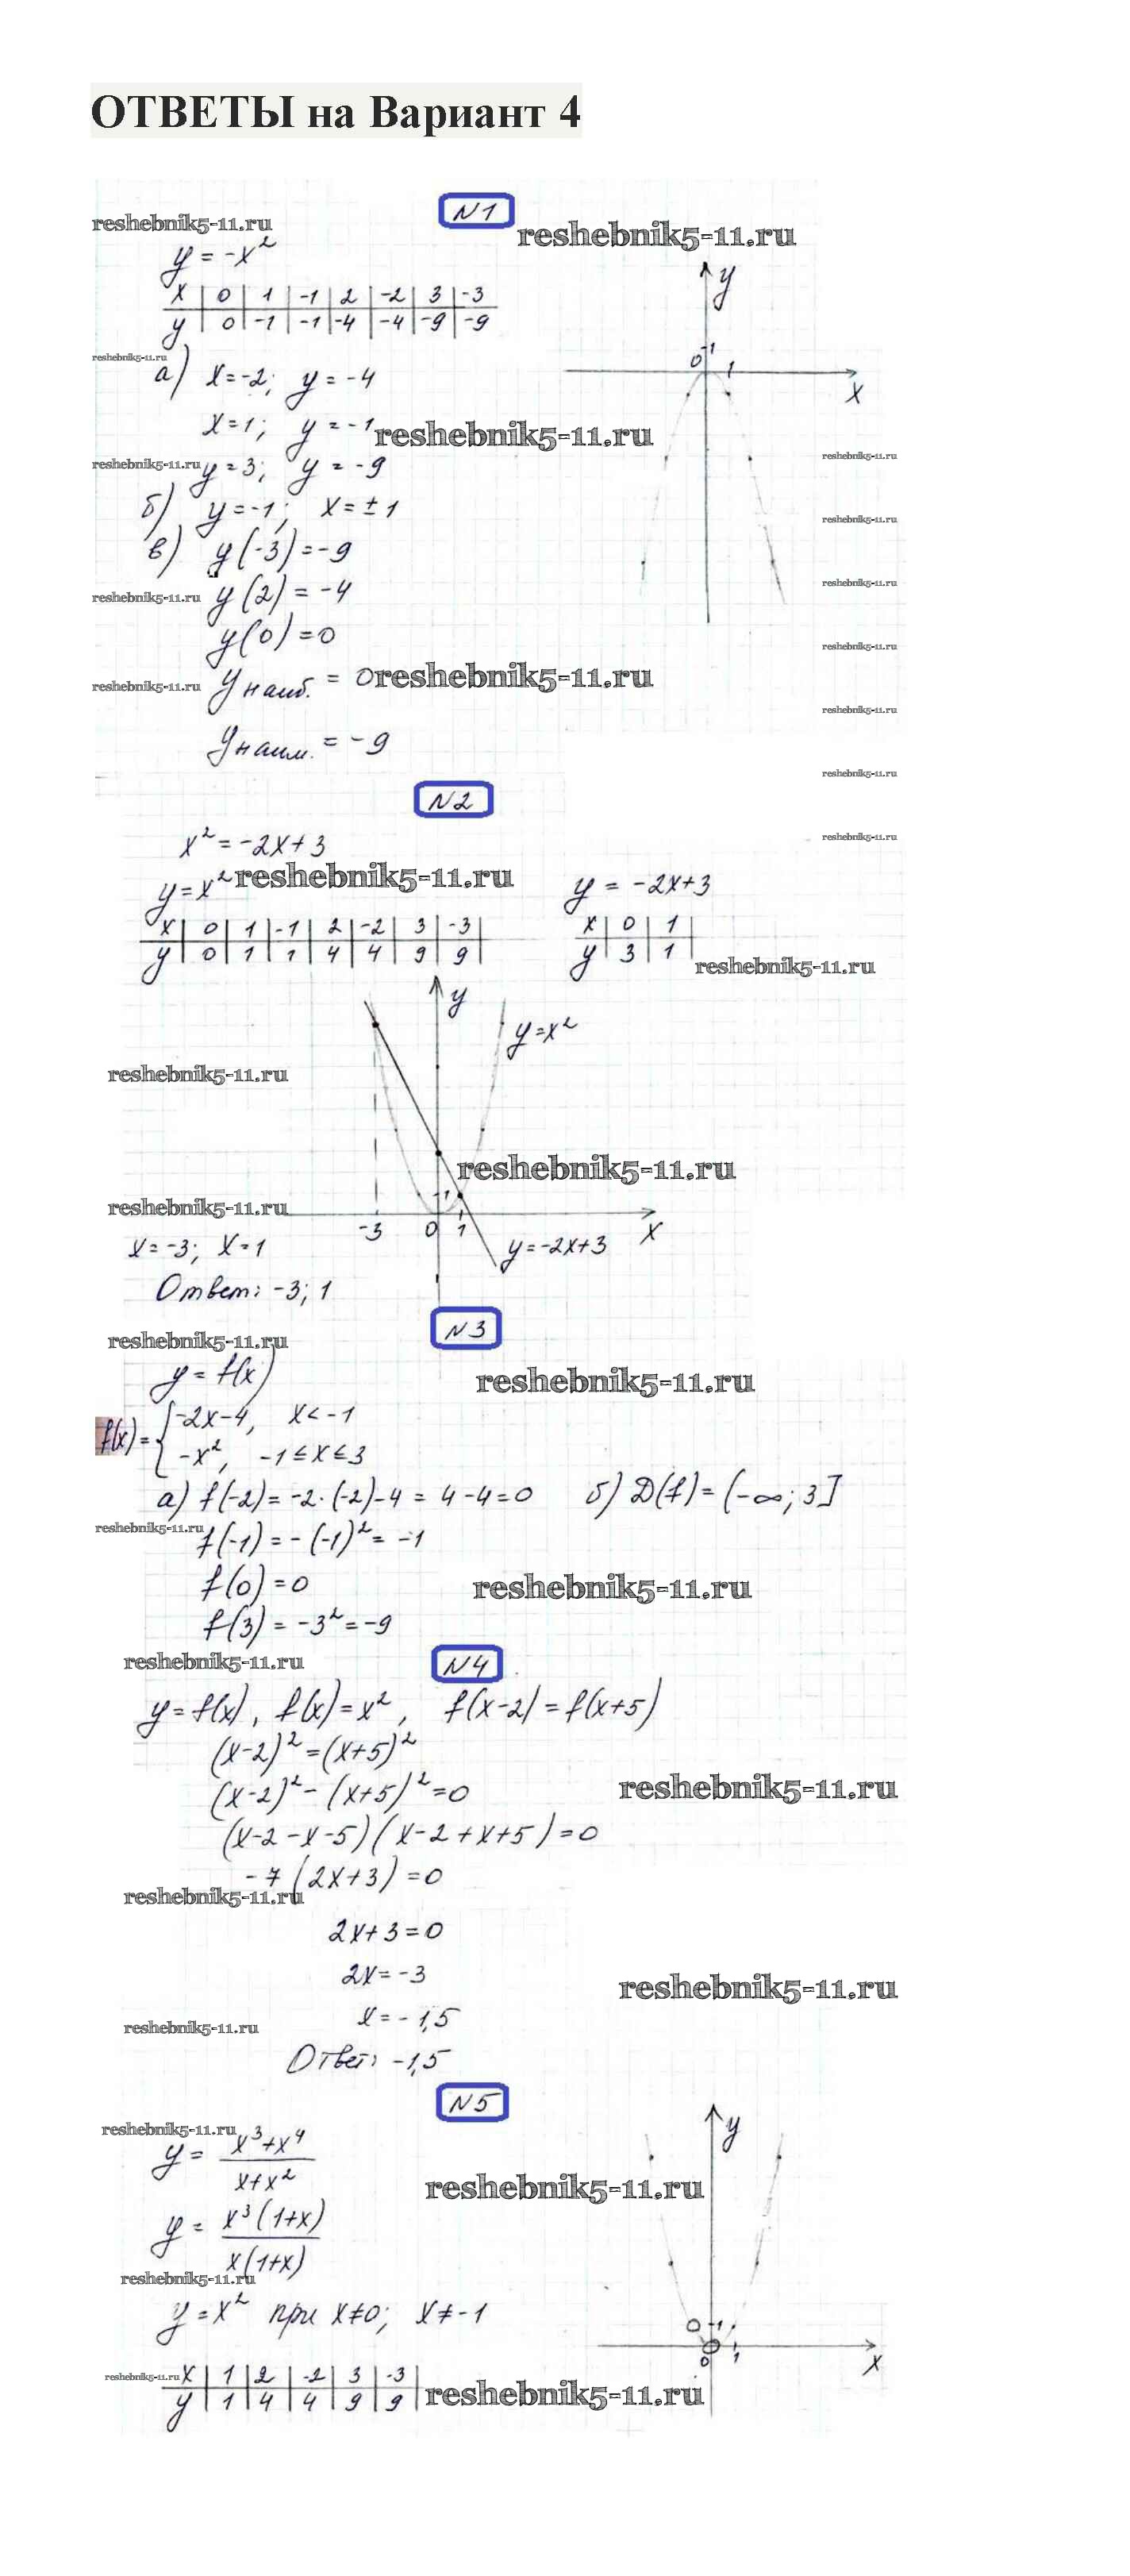 ОТВЕТЫ на Вариант 4
N1
reshebnik5-11.ru
reshebnik5-11.ru
y = -x²
y
x | 0 | 1 | -1 | 2 | -2 | 3 | -3
y | 0 | -1 | -1 | -4 | -4 | -9 | -9
reshebnik5-11.ru
0 1
1
x
а) x=-2; y = -4
x=1; y = -1
reshebnik5-11.ru
reshebnik5-11.ru
reshebnik5-11.ru
y = 3; y = -9
б) y=-1; x= ±1
reshebnik5-11.ru
в) y(-3) = -9
reshebnik5-11.ru
reshebnik5-11.ru
y(2) = -4
y(0) = 0
reshebnik5-11.ru
reshebnik5-11.ru
yнаиб. = 0
reshebnik5-11.ru
reshebnik5-11.ru
yнаим. = -9
reshebnik5-11.ru
N2
reshebnik5-11.ru
x² = -2x+3
y=x²
reshebnik5-11.ru
y = -2x+3
x | 0 | 1 | -1 | 2 | -2 | 3 | -3
y | 0 | 1 | 1 | 4 | 4 | 9 | 9
x | 0 | 1
y | 3 | 1
reshebnik5-11.ru
y
y=x²
reshebnik5-11.ru
reshebnik5-11.ru
1
reshebnik5-11.ru
-3 0 1
x
y=-2x+3
x=-3; x=1
Ответ: -3; 1
N3
reshebnik5-11.ru
y = f(x)
reshebnik5-11.ru
f(x) = { -2x-4, x<-1
-x², -1≤x≤3
а) f(-2) = -2·(-2)-4 = 4-4=0 б) D(f) = (-∞; 3]
reshebnik5-11.ru
f(-1) = -(-1)² = -1
f(0) = 0
reshebnik5-11.ru
f(3) = -3² = -9
reshebnik5-11.ru
N4
y=f(x), f(x)=x², f(x-2) = f(x+5)
(x-2)² = (x+5)²
(x-2)² - (x+5)² = 0
reshebnik5-11.ru
(x-2-x-5)(x-2+x+5) = 0
-7(2x+3) = 0
reshebnik5-11.ru
2x+3=0
2x=-3
reshebnik5-11.ru
x = -1,5
reshebnik5-11.ru
Ответ: -1,5
N5
reshebnik5-11.ru
y = x³+x⁴
x+x²
y
reshebnik5-11.ru
y = x³(1+x)
x(1+x)
reshebnik5-11.ru
y=x² при x≠0; x≠-1
1
0 1
x
reshebnik5-11.ru
x | 1 | 2 | -2 | 3 | -3
y | 1 | 4 | 4 | 9 | 9
reshebnik5-11.ru